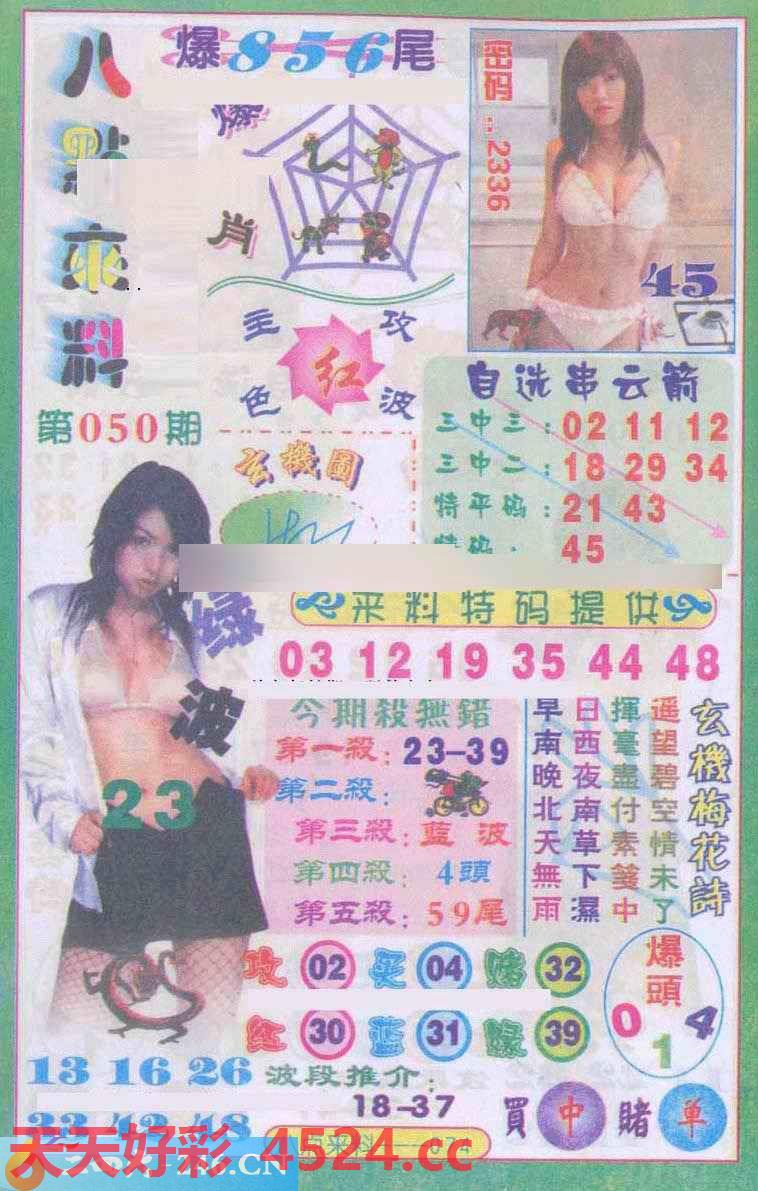 八點來料
爆856尾
爆
肖
密码:2336
45
主攻
红
色波
第050期
玄機圖
自选串云箭
三中三:02 11 12
三中二:18 29 34
特平码:21 43
特码:45
来料特码提供
03 12 19 35 44 48
绿波
23
今期殺無錯
第一殺:23-39
第二殺:
第三殺:蓝波
第四殺:4頭
第五殺:59尾
玄機梅花詩
遥望碧空情未了
揮毫盡付素箋中
日西夜南草下濕
早南晚北天無雨
攻 02 买 04 赌 32
红 30 蓝 31 绿 39
爆頭
0 1 4
13 16 26
波段推介:
23 42 48
18-37
買中賭单
天天好彩 4524.cc